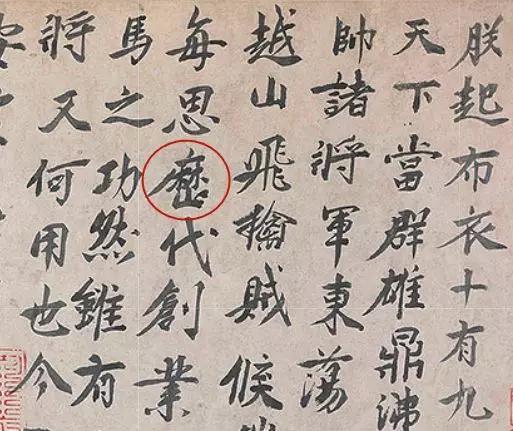 朕起布衣十有九
天下當群雄鼎沸
帥諸將軍東蕩
越山飛擒賊候
每思歷代創業
馬之功然雖有
將又何用也今